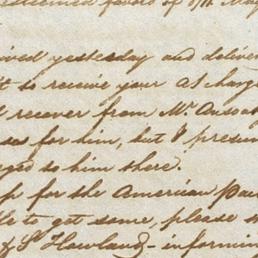 esteemed favors of 8th May
ived yesterday and deliver
t to receive your A Charge
d recover from Mr. Ausoa
ses for him, but I presum
ges to him there.
p for the American pac
le to get some, please s
& S. Howland - informin